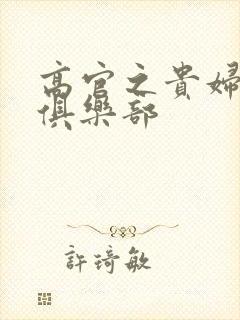 高官之貴婦
俱樂部
許琦敏